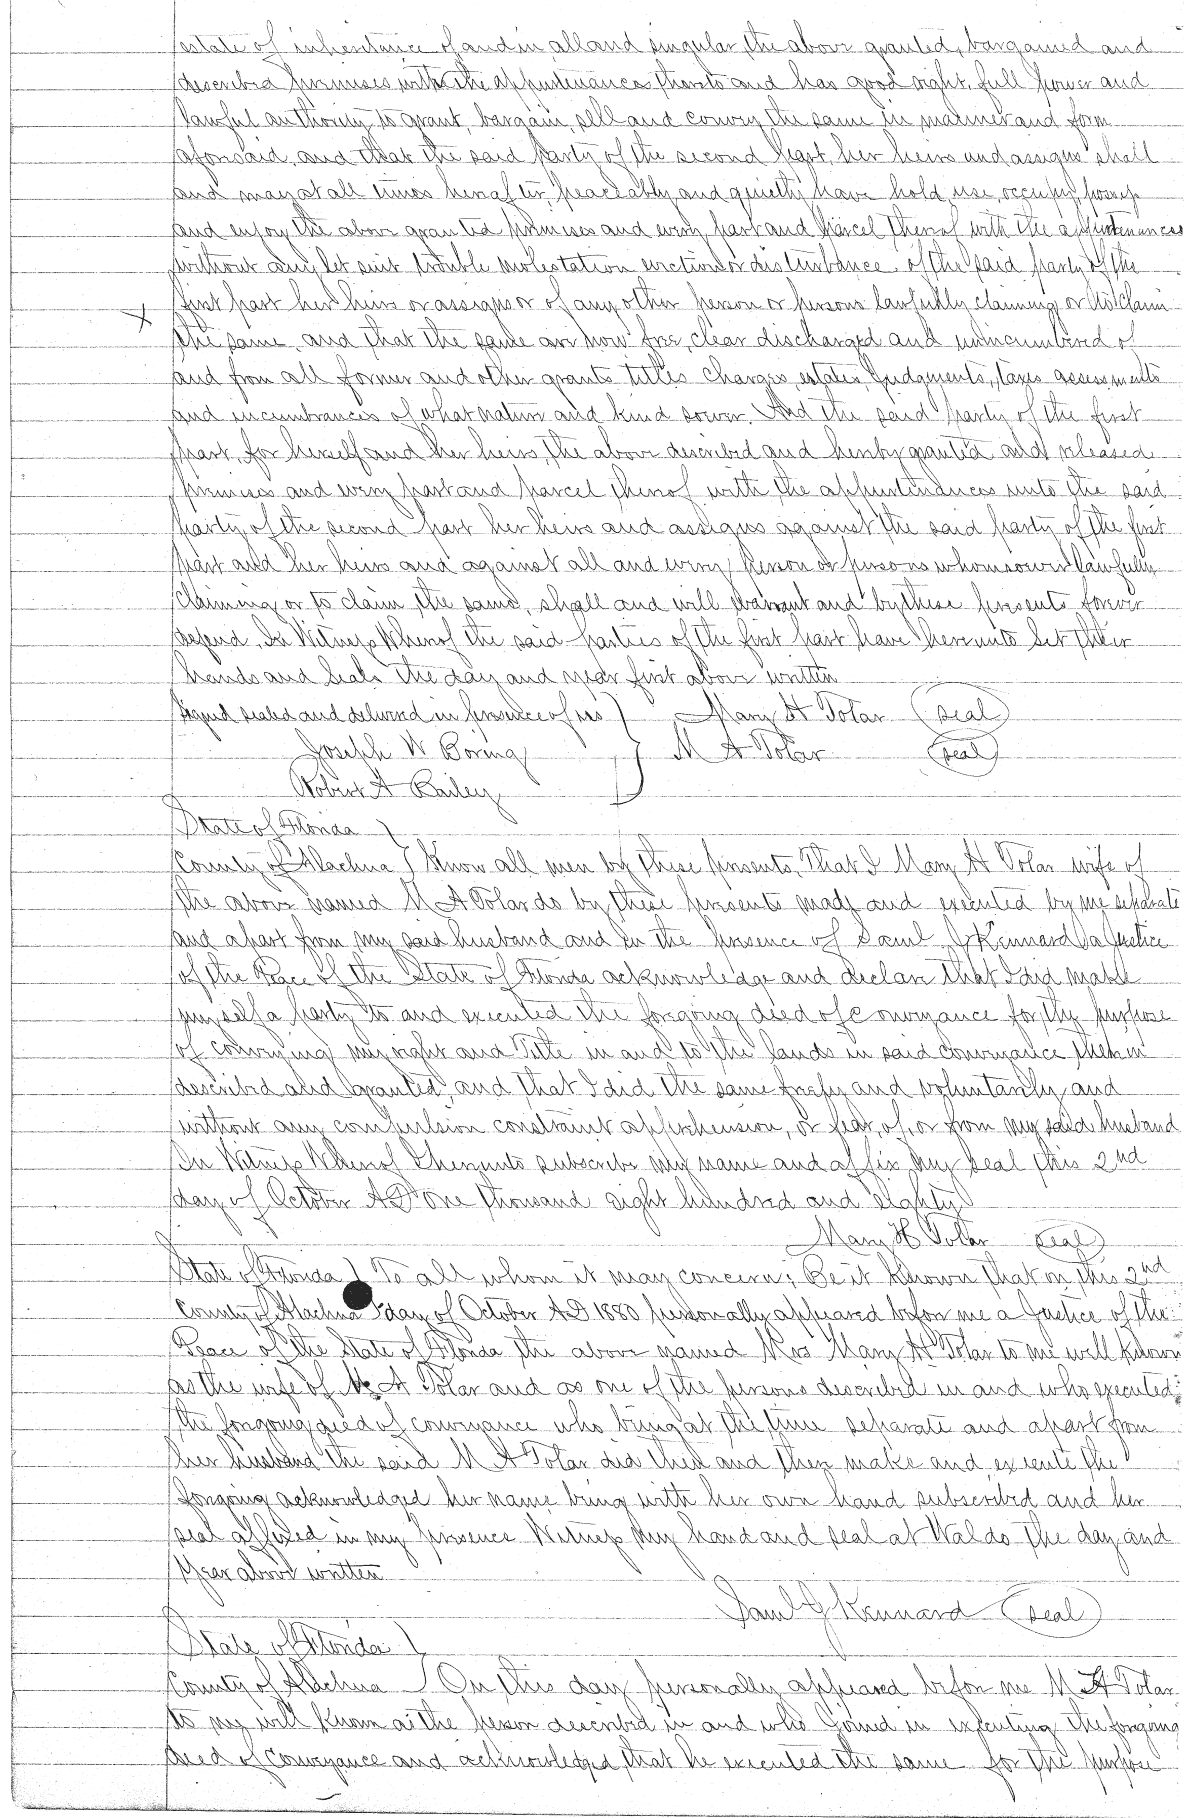 estate of inheritance of and in all and singular the above granted, bargained and
described premises with the appurtenances thereto and has good right, full power and
lawful authority to grant, bargain, sell and convey the same in manner and form
aforesaid, and that the said party of the second part, her heirs and assigns shall
and may at all times hereafter, peaceably and quietly have hold, use, occupy, possess
and enjoy the above granted premises and every part and parcel thereof with the appurtenances
without any let suit trouble molestation eviction or disturbance of the said party of the
first part her heirs or assigns or of any other person or persons lawfully claiming or to claim
X
the same, and that the same are now free, clear discharged and unincumbered of
and from all former and other grants titles charges, estates, Judgments, taxes assessments
and incumbrances of what nature and kind soever. And the said party of the first
part, for herself and her heirs, the above described and hereby granted and released
premises and every part and parcel thereof with the appurtenances unto the said
party of the second part her heirs and assigns against the said party of the first
part and her heirs and against all and every person or persons whomsoever lawfully
claiming or to claim the same, shall and will warrant and by these presents forever
defend. In Witness Whereof the said parties of the first part have hereunto set their
hands and seals the day and year first above written
Signed sealed and delivered in presence of us } Mary H Tolar (seal)
Joseph W Boring } M A Tolar (seal)
Robert A Bailey
State of Florida }
County of Alachua } Know all men by these presents, That I Mary H Tolar wife of
the above named M A Tolar do by these presents made and executed by me separate
and apart from my said husband and in the presence of Saml G Kennard a Justice
of the Peace of the State of Florida acknowledge and declare that I did make
myself a party to and executed the foregoing deed of conveyance for the purpose
of conveying my right and Title in and to the lands in said conveyance therein
described and granted, and that I did the same freely and voluntarily and
without any compulsion constraint apprehension, or fear, of, or from my said husband
In Witness Whereof I hereunto subscribe my name and affix my seal this 2nd
day of October AD one thousand eight hundred and eighty
Mary H Tolar (seal)
State of Florida } To all whom it may concern; Be it Known that on this 2nd
County of Alachua } day of October AD 1880 personally appeared before me a Justice of the
Peace of the State of Florida the above named Mrs Mary H Tolar to me well Known
as the wife of M A Tolar and as one of the persons described in and who executed
the foregoing deed of conveyance who being at the time separate and apart from
her husband the said M A Tolar did then and there make and execute the
foregoing acknowledged her name being with her own hand subscribed and her
seal affixed in my presence Witness my hand and seal at Waldo the day and
Year above written
Saml G Kennard (seal)
State of Florida }
County of Alachua } On this day personally appeared before me M A Tolar
to me well Known as the person described in and who Joined in executing the foregoing
deed of conveyance and acknowledged, that he executed the same for the purpose